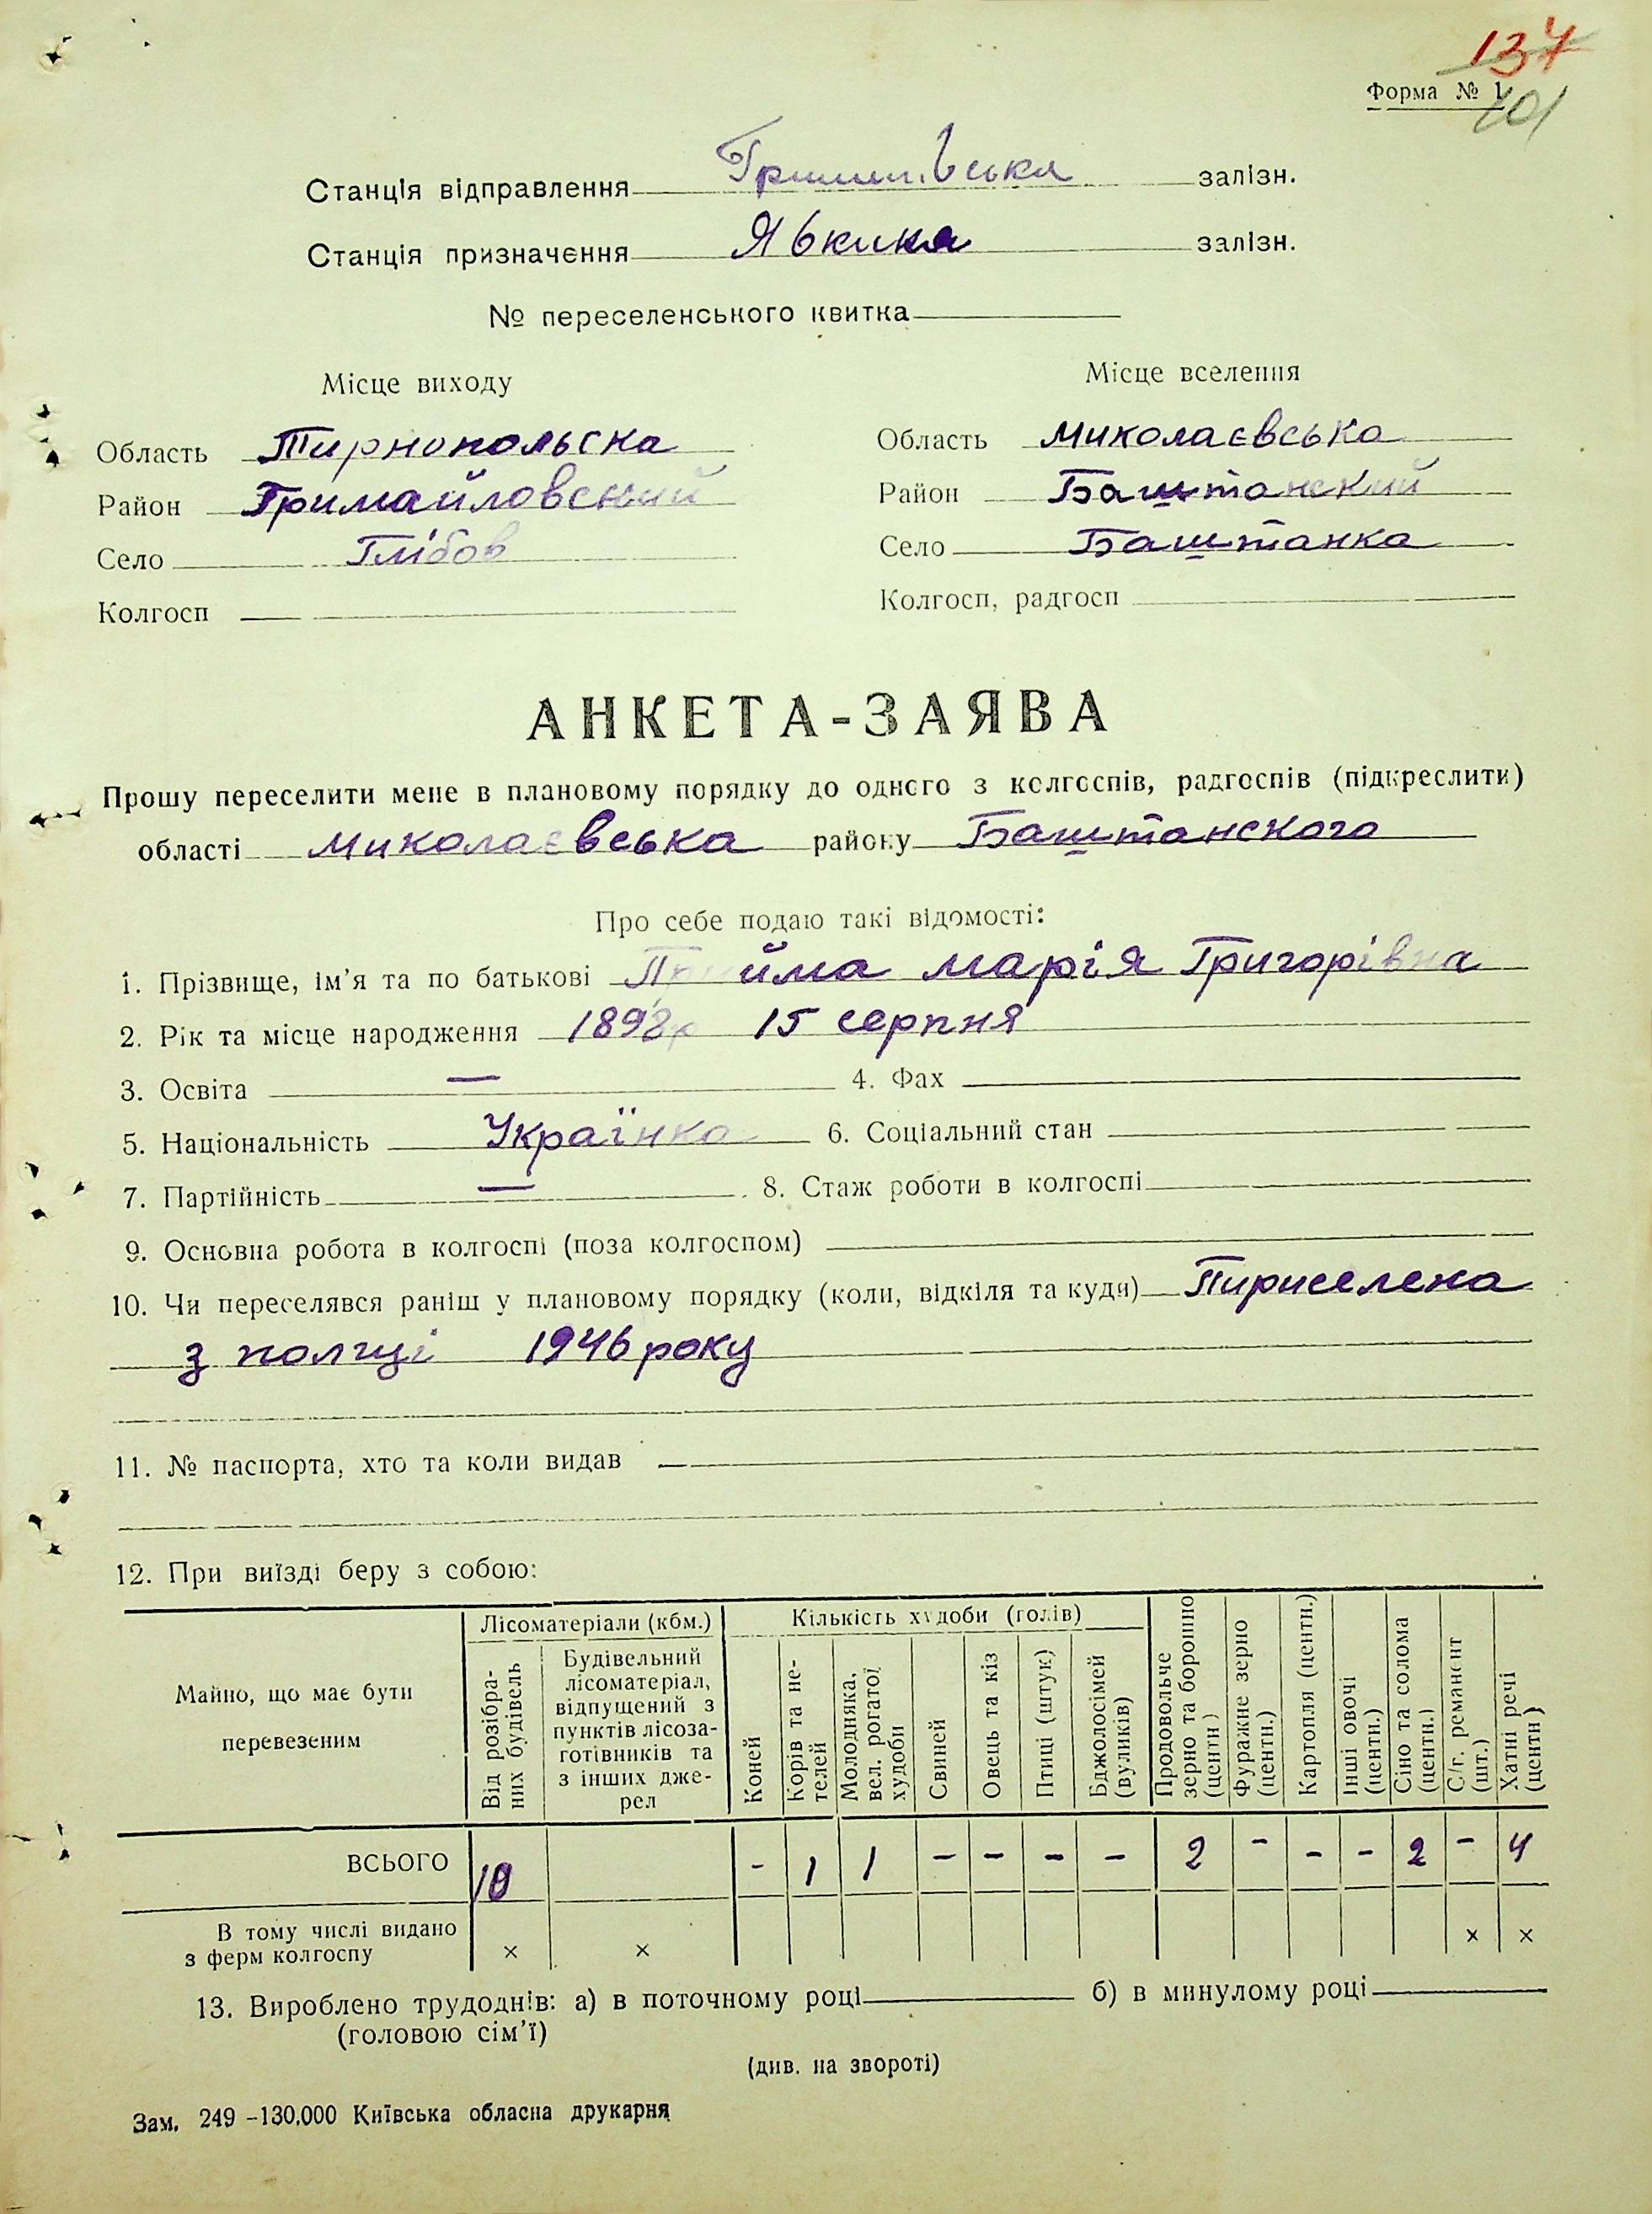 137
Форма № 1
101
Станція відправлення залізн.
Станція призначення Явкина залізн.
№ переселенського квитка
Місце виходу Місце вселення
Область Тирнопольска Область Миколаєвська
Район Гримайловский Район Баштанский
Село Глібов Село Баштанка
Колгосп Колгосп, радгосп
АНКЕТА-ЗАЯВА
Прошу переселити мене в плановому порядку до одного з колгоспів, радгоспів (підкреслити)
області Миколаєвська району Баштанского
Про себе подаю такі відомості:
1. Прізвище, ім'я та по батькові Прийма Марія Григорівна
2. Рік та місце народження 1898р 15 серпня
3. Освіта — 4. Фах
5. Національність Українка 6. Соціальний стан
7. Партійність — 8. Стаж роботи в колгоспі
9. Основна робота в колгоспі (поза колгоспом)
10. Чи переселявся раніш у плановому порядку (коли, відкіля та куди) Пириселена
з полщі 1946 року
11. № паспорта, хто та коли видав
12. При виїзді беру з собою:
Майно, що має бути перевезеним
Лісоматеріали (кбм.)
Від розібра-
них будівель
Будівельний
лісоматеріал,
відпущений з
пунктів лісоза-
готівників та
з інших дже-
рел
Кількість худоби (голів)
Коней
Корів та не-
телей
Молодняка,
вел. рогатої
худоби
Свиней
Овець та кіз
Птиці (штук)
Бджолосімей
(вуликів)
Продовольче
зерно та борошно
(центн)
Фуражне зерно
(центн.)
Картопля (центн.)
Інші овочі
(центн.)
Сіно та солома
(центн.)
С/г. реманент
(шт.)
Хатні речі
(центн)
ВСЬОГО 10 - 1 1 - - - - 2 - - - 2 - 4
В тому числі видано
з ферм колгоспу × × × ×
13. Вироблено трудоднів: а) в поточному році б) в минулому році
(головою сім'ї)
(див. на звороті)
Зам. 249 –130.000 Київська обласна друкарня